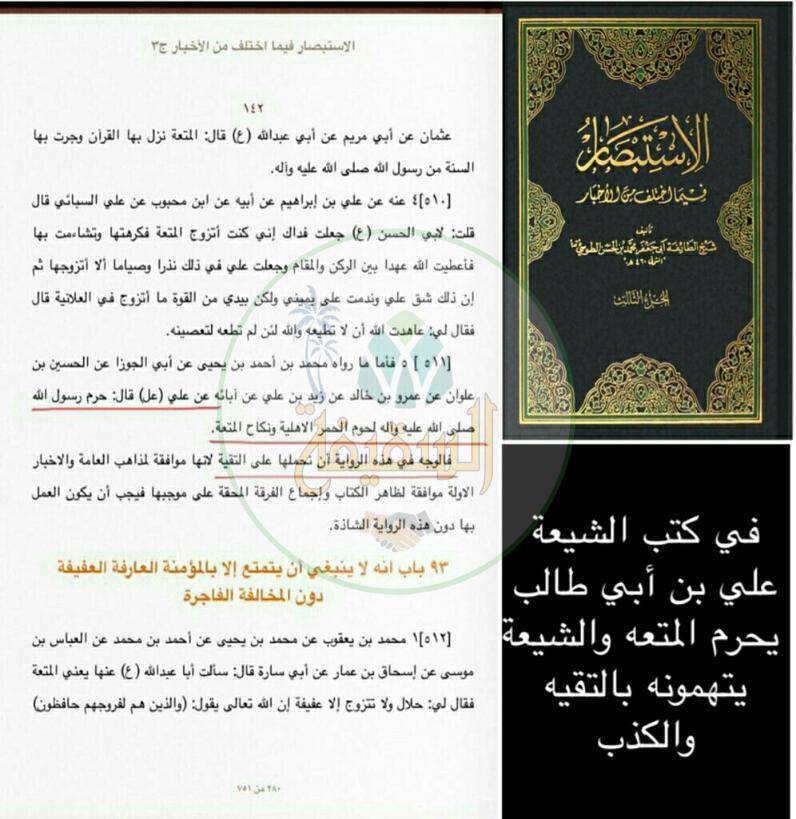 الاستبصار فيما اختلف من الأخبار ج٣
١٤٢
عثمان عن أبي مريم عن أبي عبدالله (ع) قال: المتعة نزل بها القرآن وجرت بها
السنة من رسول الله صلى الله عليه وآله.
[٥١٠]٤ عنه عن علي بن إبراهيم عن أبيه عن ابن محبوب عن علي السبائي قال
قلت: لابي الحسن (ع) جعلت فداك إني كنت أتزوج المتعة فكرهتها وتشاءمت بها
فأعطيت الله عهدا بين الركن والمقام وجعلت علي في ذلك نذرا وصياما ألا أتزوجها ثم
إن ذلك شق علي وندمت على يميني ولكن بيدي من القوة ما أتزوج في العلانية قال
فقال لي: عاهدت الله أن لا تطيعه والله لئن لم تطعه لتعصينه.
[٥١١ ]٥ فأما ما رواه محمد بن أحمد بن يحيى عن أبي الجوزا عن الحسين بن
علوان عن عمرو بن خالد عن زيد بن علي عن آبائه عن علي (عل) قال: حرم رسول الله
صلى الله عليه وآله لحوم الحمر الاهلية ونكاح المتعة.
فالوجه في هذه الرواية أن نحملها على التقية لانها موافقة لمذاهب العامة والاخبار
الاولة موافقة لظاهر الكتاب وإجماع الفرقة المحقة على موجبها فيجب أن يكون العمل
بها دون هذه الرواية الشاذة.
٩٣ باب انه لا ينبغي أن يتمتع إلا بالمؤمنة العارفة العفيفة
دون المخالفة الفاجرة
[٥١٢]١ محمد بن يعقوب عن محمد بن يحيى عن أحمد بن محمد عن العباس بن
موسى عن إسحاق بن عمار عن أبي سارة قال: سألت أبا عبدالله (ع) عنها يعني المتعة
فقال لي: حلال ولا تتزوج إلا عفيفة إن الله تعالى يقول: (والذين هم لفروجهم حافظون)
٢٨٠ من ٧٥١
السقيفة
الاستبصار
فيما اختلف من الأخبار
تأليف
شيخ الطائفة أبي جعفر محمد بن الحسن الطوسي
المتوفى ٤٦٠ هـ
الجزء الثالث
في كتب الشيعة
علي بن أبي طالب
يحرم المتعه والشيعة
يتهمونه بالتقيه
والكذب